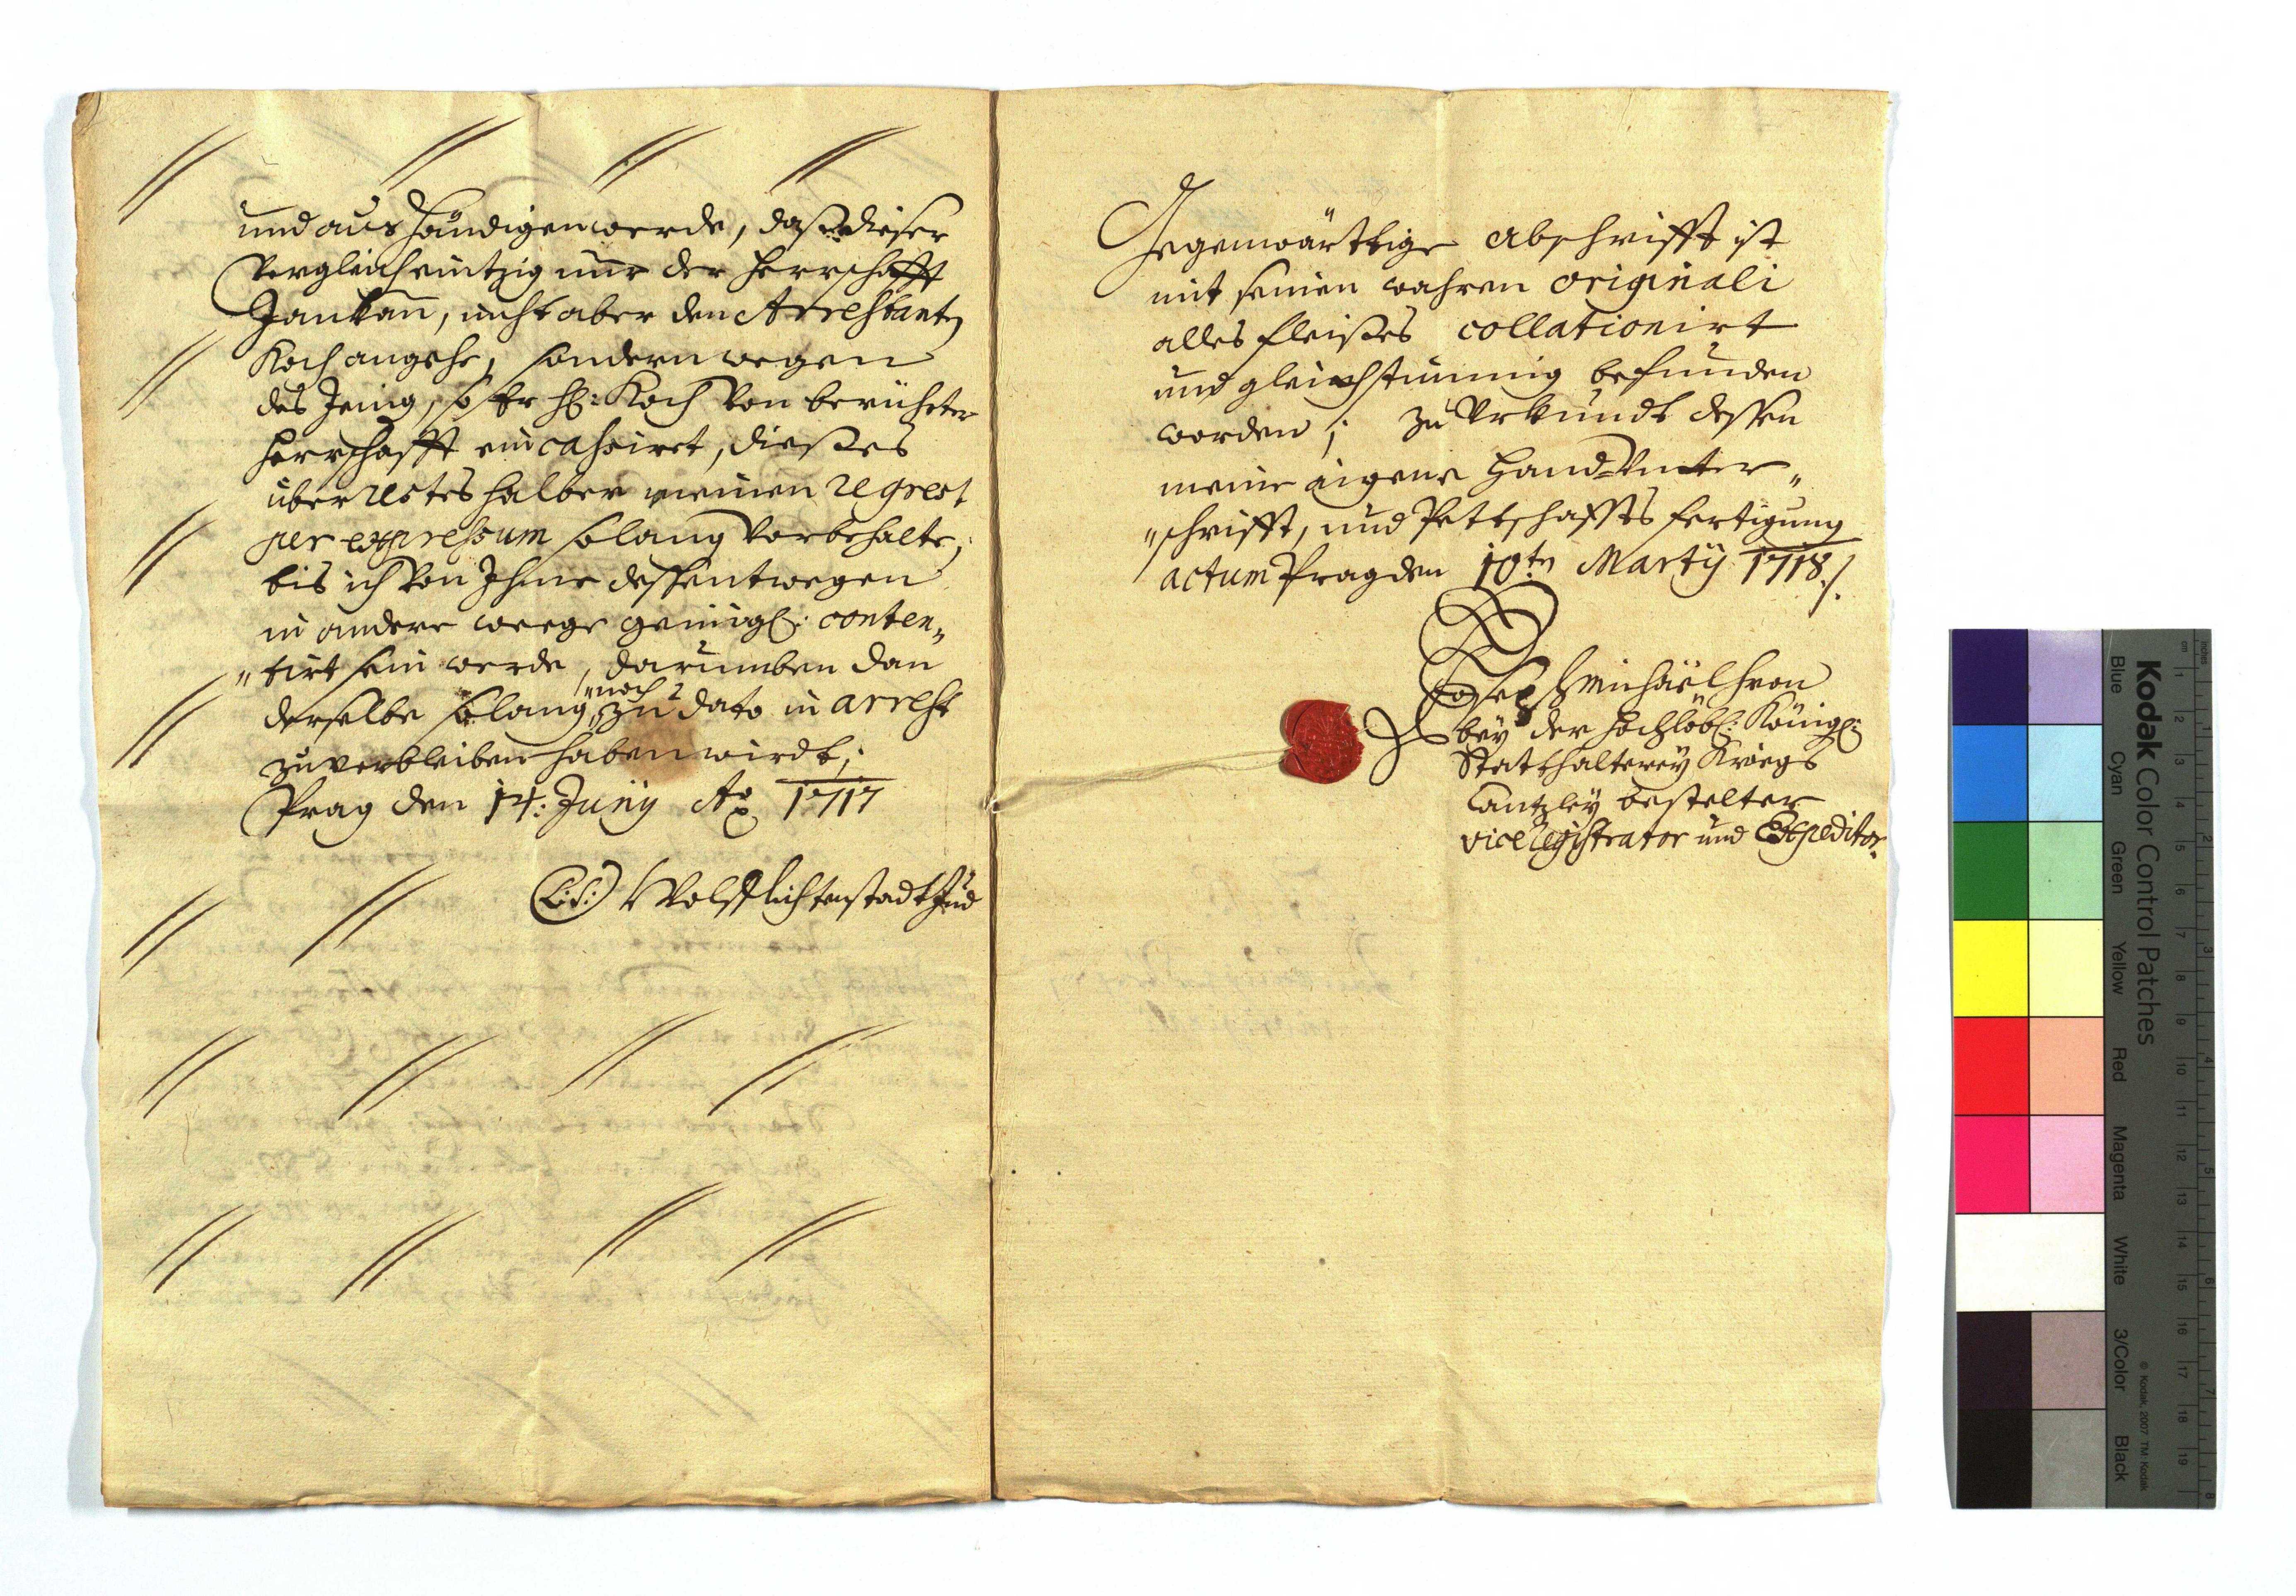 und aus händigen werde, daß dieser
Vergleich eintzig nur der Herrschafft
Jankau, nicht aber den Arrestantꝫ
Koch angehe, sondern wegen
des Jenig, so Er H: Koch von berührter
Herrschafft eincassiret, dießes
über restes halber meinen regress
per expressum solang vorbehalte,
bis ich von Ihme dessentwegen
in andere weege genügl: conten„
„tirt sein werde, darumben dan
derselbe solang „noch„ zu dato in arrest
zu verbleiben haben wirdt;
Prag den 14: Junÿ Ao 1717
(L:S:) Wolff Lichtenstadt Jud
Gegenwärttige abschrifft ist
mit seinen wahren originali
alles fleißes collationirt
und gleichstimmig befunden
worden; zu Urkundt dessen
meine eigene Hand=Unter„
„schrifft, und Pettschaffts fertigung
actum Prag den 10tn Martÿ 1718 /.
Joseph Michäel Hron
bëÿ der hochlöbl: Königl:
Statthalterëÿ Kriegs
Cantzleÿ bestelter
vice registrator und Expeditor.
Kodak Color Control Patches
Blue
Cyan
Green
Yellow
Red
Magenta
White
3/Color
Black
© Kodak, 2007 TM: Kodak
cm 1 2 3 4 5 6 7 8 9 10 11 12 13 14 15 16 17 18 19
inches 1 2 3 4 5 6 7 8